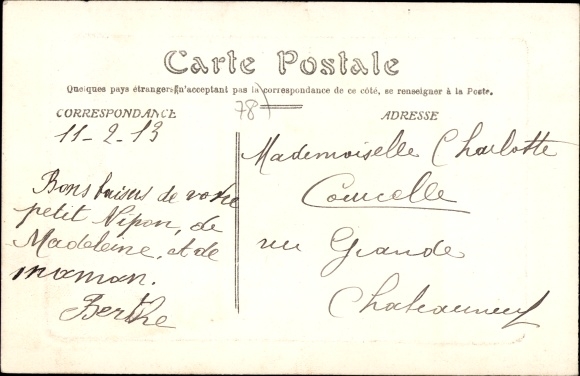 Carte Postale
Quelques pays étrangers n'acceptant pas la correspondance de ce côté, se renseigner à la Poste.
78)
CORRESPONDANCE
ADRESSE
11-2-13
Bons baisers de votre
petit Nipon, de
Madeleine, et de
maman.
Berthe
Mademoiselle Charlotte
Courcelle
rue Grande
Chateauneuf